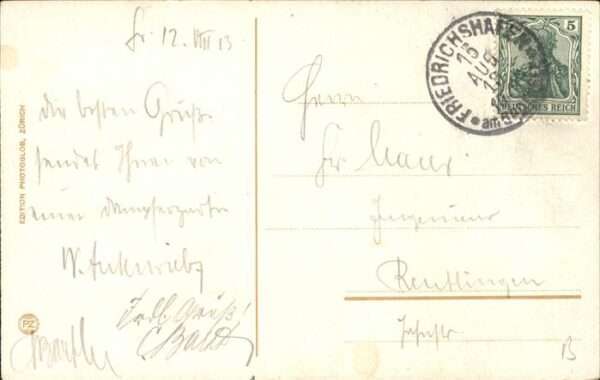 Fr. 12. VIII 13
Die besten Grüße
sendet Ihnen von
einer Dampferpartie
W.
Frdl. Grüße!
EDITION PHOTOGLOB, ZÜRICH
PZ
FRIEDRICHSHAFEN
13
AUG
5
DEUTSCHES REICH
Herrn
Fr.
Ingenieur
Reutlingen
B